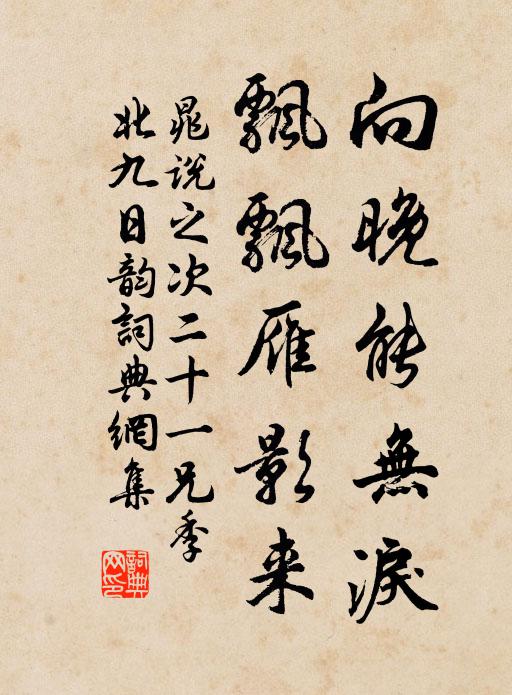 向晚能無淚
飄飄雁影来
晁説之次二十一兄季
北九日韵詞典網集
詞典网印